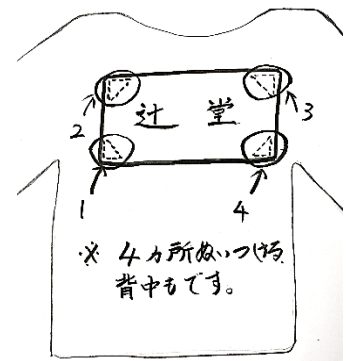 辻 堂
2 3
1 4
※ 4カ所ぬいつける
背中もです。